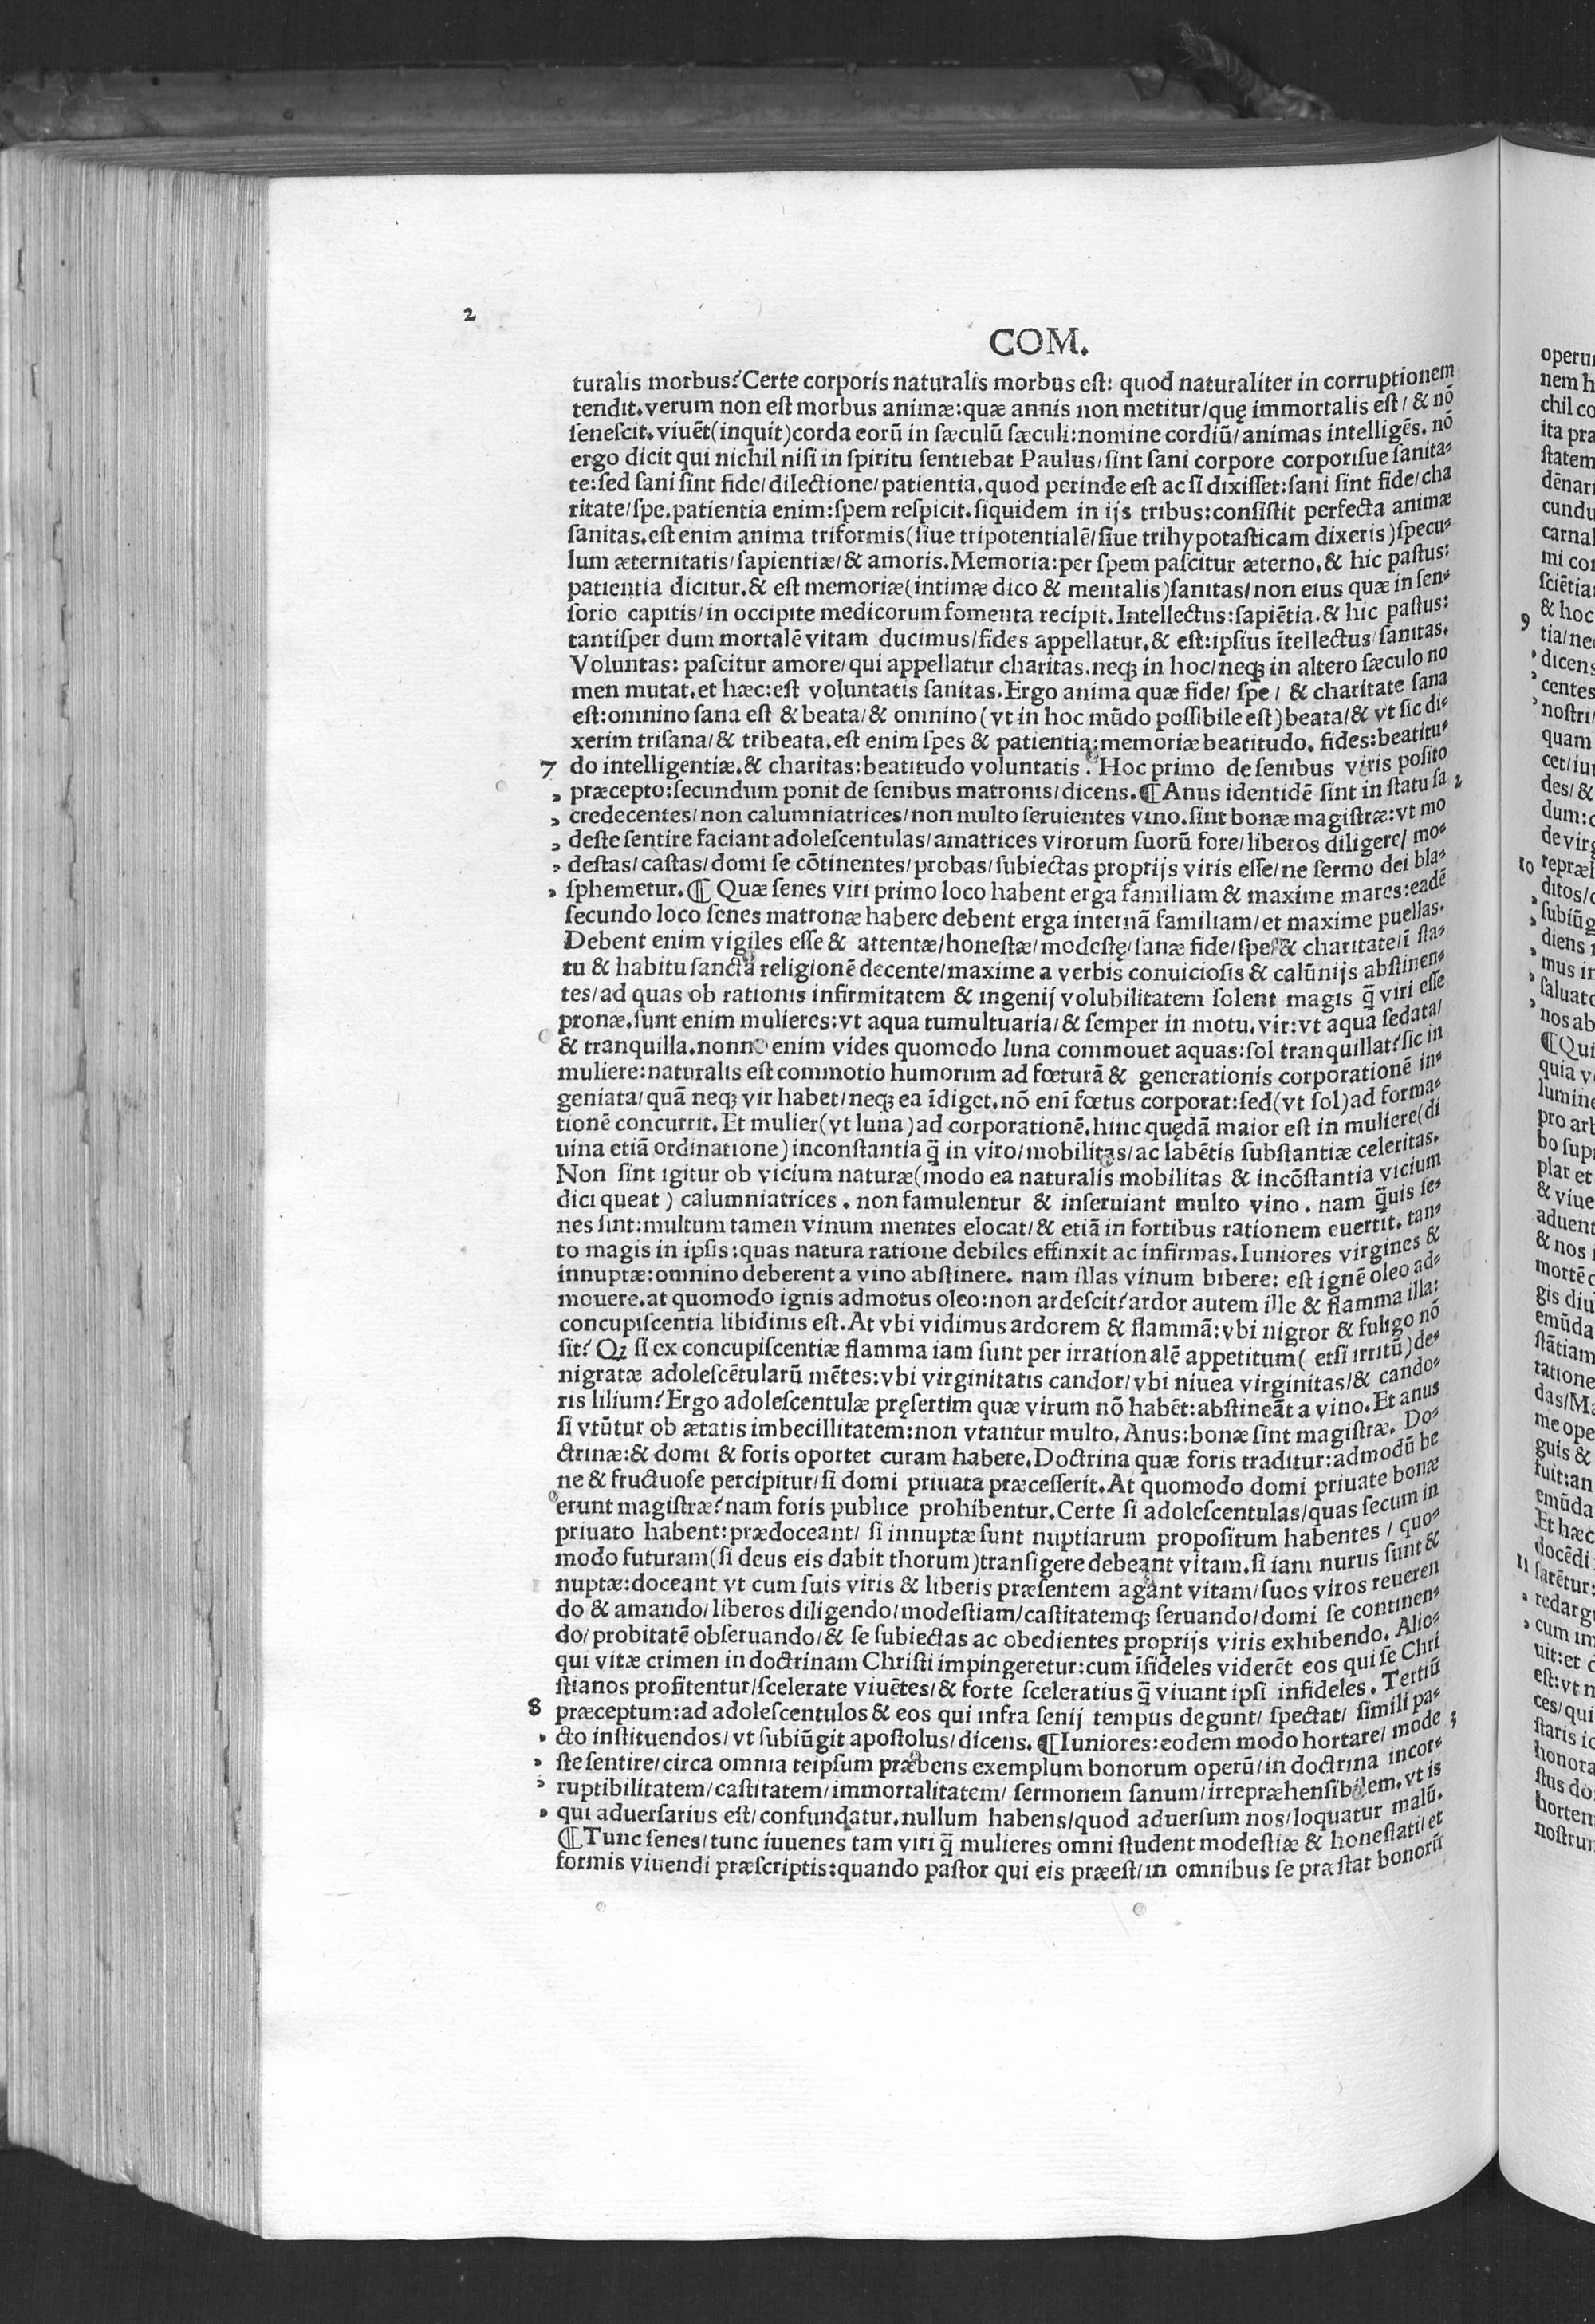 2
COM.
turalis morbus? Certe corporis naturalis morbus est: quod naturaliter in corruptionem
tendit. verum non est morbus animæ: quæ annis non metitur/ quę immortalis est/ & nõ
senescit. viuẽt (inquit) corda eorũ in sæculũ sæculi: nomine cordiũ/ animas intelligẽs. nõ
ergo dicit qui nichil nisi in spiritu sentiebat Paulus/ sint sani corpore corporisue sanita⸗
te: sed sani sint fide/ dilectione/ patientia. quod perinde est ac si dixisset: sani sint fide/ cha
ritate/ spe. patientia enim: spem respicit. siquidem in ijs tribus: consistit perfecta animæ
sanitas. est enim anima triformis (siue tripotentialẽ/ siue trihypotasticam dixeris) specu⸗
lum æternitatis/ sapientiæ/ & amoris. Memoria: per spem pascitur æterno. & hic pastus:
patientia dicitur. & est memoriæ (intimæ dico & mentalis) sanitas/ non eius quæ in sen⸗
sorio capitis/ in occipite medicorum fomenta recipit. Intellectus: sapiẽtia. & hic pastus:
tantisper dum mortalẽ vitam ducimus/ fides appellatur. & est: ipsius ĩtellectus sanitas.
Voluntas: pascitur amore/ qui appellatur charitas. neqꝫ in hoc/ neqꝫ in altero sæculo no
men mutat. et hæc: est voluntatis sanitas. Ergo anima quæ fide/ spe/ & charitate sana
est: omnino sana est & beata/ & omnino (vt in hoc mũdo possibile est) beata/ & vt sic di⸗
xerim trisana/ & tribeata. est enim spes & patientia: memoriæ beatitudo. fides: beatitu⸗
7 do intelligentiæ. & charitas: beatitudo voluntatis. Hoc primo de senibus viris posito
præcepto: secundum ponit de senibus matronis/ dicens. ¶ Anus identidẽ sint in statu sa 2
credecentes/ non calumniatrices/ non multo seruientes vino. sint bonæ magistræ: vt mo
deste sentire faciant adolescentulas/ amatrices virorum suorũ fore/ liberos diligere/ mo⸗
destas/ castas/ domi se cõtinentes/ probas/ subiectas proprijs viris esse/ ne sermo dei bla⸗
sphemetur. ¶ Quæ senes viri primo loco habent erga familiam & maxime mares: eadẽ
secundo loco senes matronæ habere debent erga internã familiam/ et maxime puellas.
Debent enim vigiles esse & attentæ/ honestæ/ modestę/ sanæ fide/ spe & charitate/ ĩ sta⸗
tu & habitu sanctã religionẽ decente/ maxime a verbis conuiciosis & calũnijs abstinen⸗
tes/ ad quas ob rationis infirmitatem & ingenij volubilitatem solent magis q̃ viri esse
pronæ. sunt enim mulieres: vt aqua tumultuaria/ & semper in motu. vir: vt aqua sedata/
& tranquilla. nonne enim vides quomodo luna commouet aquas: sol tranquillat? sic in
muliere: naturalis est commotio humorum ad fœturã & generationis corporationẽ in⸗
geniata/ quã neqꝫ vir habet/ neqꝫ ea ĩdiget. nõ enĩ fœtus corporat: sed (vt sol) ad forma⸗
tionẽ concurrit. Et mulier (vt luna) ad corporationẽ. hinc quędã maior est in muliere (di
uina etiã ordinatione) inconstantia q̃ in viro/ mobilitas/ ac labẽtis substantiæ celeritas.
Non sint igitur ob vicium naturæ (modo ea naturalis mobilitas & incõstantia vicium
dici queat) calumniatrices. non famulentur & inseruiant multo vino. nam q̃uis se⸗
nes sint: multum tamen vinum mentes elocat/ & etiã in fortibus rationem euertit. tan⸗
to magis in ipsis: quas natura ratione debiles effinxit ac infirmas. Iuniores virgines &
innuptæ: omnino deberent a vino abstinere. nam illas vinum bibere: est ignẽ oleo ad⸗
mouere. at quomodo ignis admotus oleo: non ardescit? ardor autem ille & flamma illa:
concupiscentia libidinis est. At vbi vidimus ardorem & flammã: vbi nigror & fuligo nõ
sit? Qꝫ si ex concupiscentiæ flamma iam sunt per irrationalẽ appetitum (etsi irritũ) de⸗
nigratæ adolescẽtularũ mẽtes: vbi virginitatis candor/ vbi niuea virginitas/ & cando⸗
ris lilium? Ergo adolescentulæ pręsertim quæ virum nõ habẽt: abstineãt a vino. Et anus
si vtũtur ob ætatis imbecillitatem: non vtantur multo. Anus: bonæ sint magistræ. Do⸗
ctrinæ: & domi & foris oportet curam habere. Doctrina quæ foris traditur: admodũ be
ne & fructuose percipitur/ si domi priuata præcesserit. At quomodo domi priuate bonæ
erunt magistræ? nam foris publice prohibentur. Certe si adolescentulas/ quas secum in
priuato habent: prædoceant/ si innuptæ sunt nuptiarum propositum habentes/ quo⸗
modo futuram (si deus eis dabit thorum) transigere debeant vitam. si iam nurus sunt &
nuptæ: doceant vt cum suis viris & liberis præsentem agant vitam/ suos viros reueren
do & amando/ liberos diligendo/ modestiam/ castitatemqꝫ seruando/ domi se continen⸗
do/ probitatẽ obseruando/ & se subiectas ac obedientes proprijs viris exhibendo. Alio⸗
qui vitæ crimen in doctrinam Christi impingeretur: cum ĩfideles viderẽt eos qui se Chri
stianos profitentur/ scelerate viuẽtes/ & forte sceleratius q̃ viuant ipsi infideles. Tertiũ
8 præceptum: ad adolescentulos & eos qui infra senij tempus degunt/ spectat/ simili pa⸗
cto instituendos/ vt subiũgit apostolus/ dicens. ¶ Iuniores: eodem modo hortare/ mode 3
ste sentire/ circa omnia teipsum præbens exemplum bonorum operũ/ in doctrina incor⸗
ruptibilitatem/ castitatem/ immortalitatem/ sermonem sanum/ irrepræhensibilem. vt is
qui aduersarius est/ confundatur. nullum habens/ quod aduersum nos/ loquatur malũ.
¶ Tunc senes/ tunc iuuenes tam viri q̃ mulieres omni student modestiæ & honestati/ et
formis viuendi præscriptis: quando pastor qui eis præest/ in omnibus se præstat bonorũ